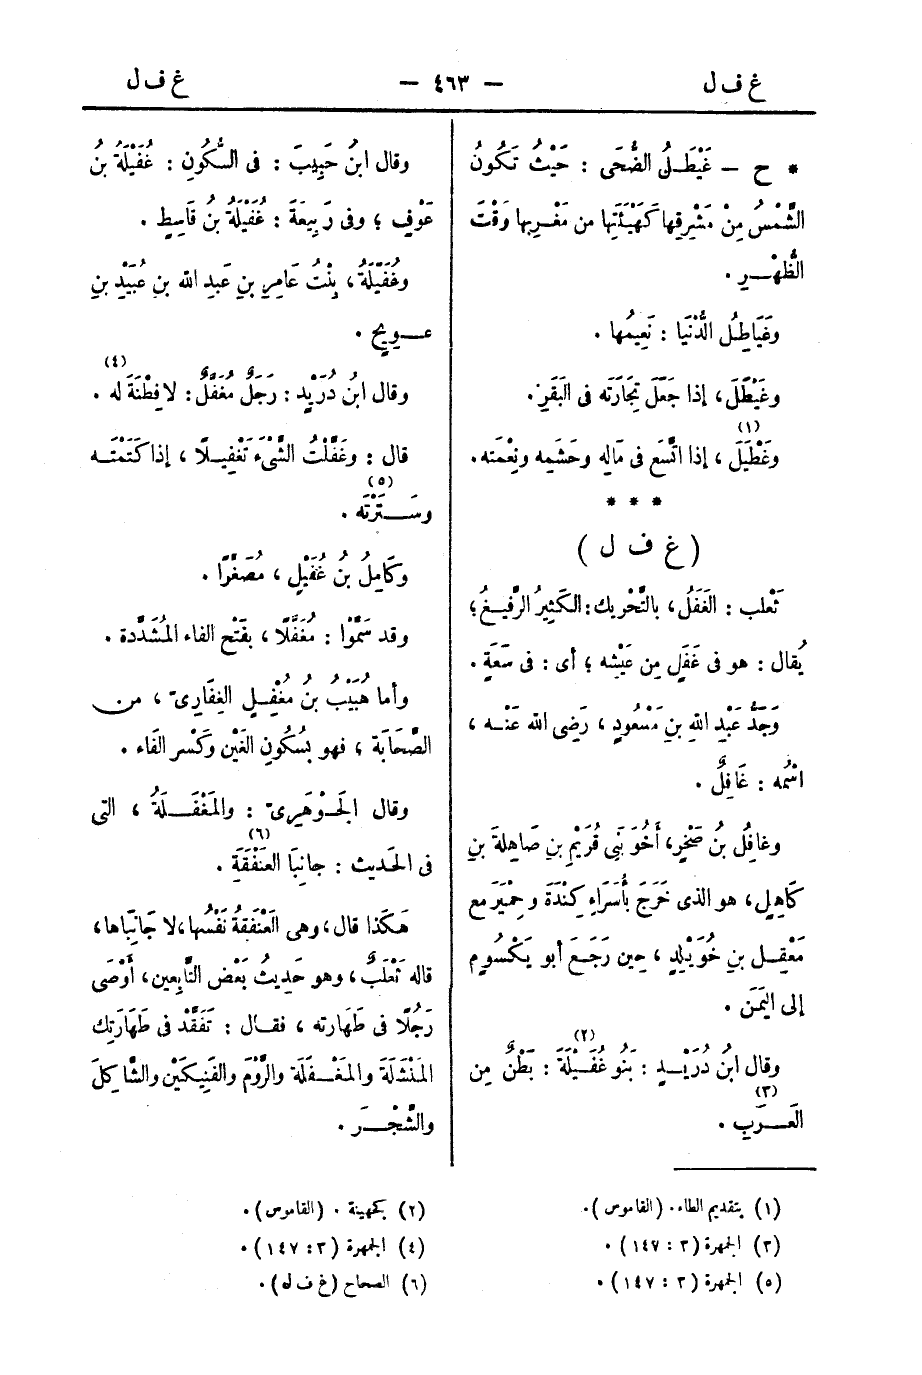 غ ف ل — ٤٦٣ — غ ف ل
* ح — غَيْطَلُ الضُّحَى : حَيْثُ تَكُونُ
الشَّمْسُ مِنْ مَشْرِقِها كَهَيْئَتِها من مَغْرِبِها وَقْتَ
الظُّهْرِ .
وغَيَاطِلُ الدُّنْيَا : نَعِيمُها .
وغَيْطَلَ ، إذا جَعَلَ تِجَارَتَه فى البَقَرِ .
وغَطْيَلَ (١) ، إذا اتَّسَع فى مَالِه وحَشَمِه ونِعْمَته .
* * *
( غ ف ل )
ثَعْلب : الغَفَلُ ، بالتَّحْرِيك : الكَثِيرُ الرَّفِيغُ ؛
يُقال : هو فى غَفَلٍ مِن عَيْشِه ؛ أى : فى سَعَةٍ .
وَجَدُّ عَبْدِ اللهِ بنِ مَسْعُودٍ ، رَضِى الله عَنْه ،
اسْمُه : غَافِلٌ .
وغافِلُ بنُ صَخْرٍ ، أَخُو بَنِى قُرَيْمِ بنِ صَاهِلةَ بنِ
كَاهِلٍ ، هو الذى خَرَجَ بأُسَرَاءِ كِنْدَةَ وحِمْيَرَ مع
مَعْقِل بنِ خُوَيْلِدٍ ، حِين رَجَعَ أبو يَكْسُومٍ
إلى اليَمَنِ .
وقال ابنُ دُرَيْدٍ : بَنُو غُفَيْلَةَ (٢) : بَطْنٌ مِن
العَرَبِ (٣) .
وقال ابنُ حَبِيبَ : فى السَّكُونِ : غُفَيْلَةُ بنُ
عَوْفٍ ؛ وفى رَبِيعَةَ : غُفَيْلَةُ بنُ قَاسِطٍ .
وغُفَيْلَةُ ، بِنْتُ عَامِرِ بنِ عَبدِ الله بنِ عُبَيْدِ بنِ
عويِجٍ .
وقال ابنُ دُرَيْدٍ : رَجَلٌ مُغَفَّلٌ : لا فِطْنَةَ له (٤) .
قال : وغَفَّلْتُ الشَّىْءَ تَغْفِيلًا ، إذا كَتَمْتَه
وسَتَرْتَه (٥) .
وكَامِلُ بنُ غُفَيْلٍ ، مُصَغَّرًا .
وقد سَمَّوْا : مُغَفَّلًا ، بفَتْح الفاء المُشَدَّدة .
وأما هُبَيْبُ بنُ مُغْفِلٍ الغِفَارِىّ ، من
الصَّحَابَة ؛ فهو بسُكُونِ الغَيْن وكَسْر الفَاء .
وقال الجَوْهَرِىّ : والمَغْفَلَةُ ، التى
فى الحَديث : جانِبَا العَنْفَقَةِ (٦) .
هَكَذا قال ، وهى العَنْفَقةُ نَفْسُها ، لا جَانِبَاها ،
قاله ثَعْلَبٌ ، وهو حَدِيثُ بَعْض التَّابِعين ، أَوْصَى
رَجُلًا فى طَهَارَته ، فقال : تَفَقَّدْ فى طَهَارَتِك
المَنْشَلَةَ والمَغْفَلَةَ والرَّوْمَ والفَنِيكَيْن والشَّاكِلَ
والشَّجْرَ .
(١) بتقديم الطاء . (القاموس) .
(٢) كجهينة . (القاموس) .
(٣) الجمهرة (٣ : ١٤٧) .
(٤) الجمهرة (٣ : ١٤٧) .
(٥) الجمهرة (٣ : ١٤٧) .
(٦) الصحاح (غ ف ل) .